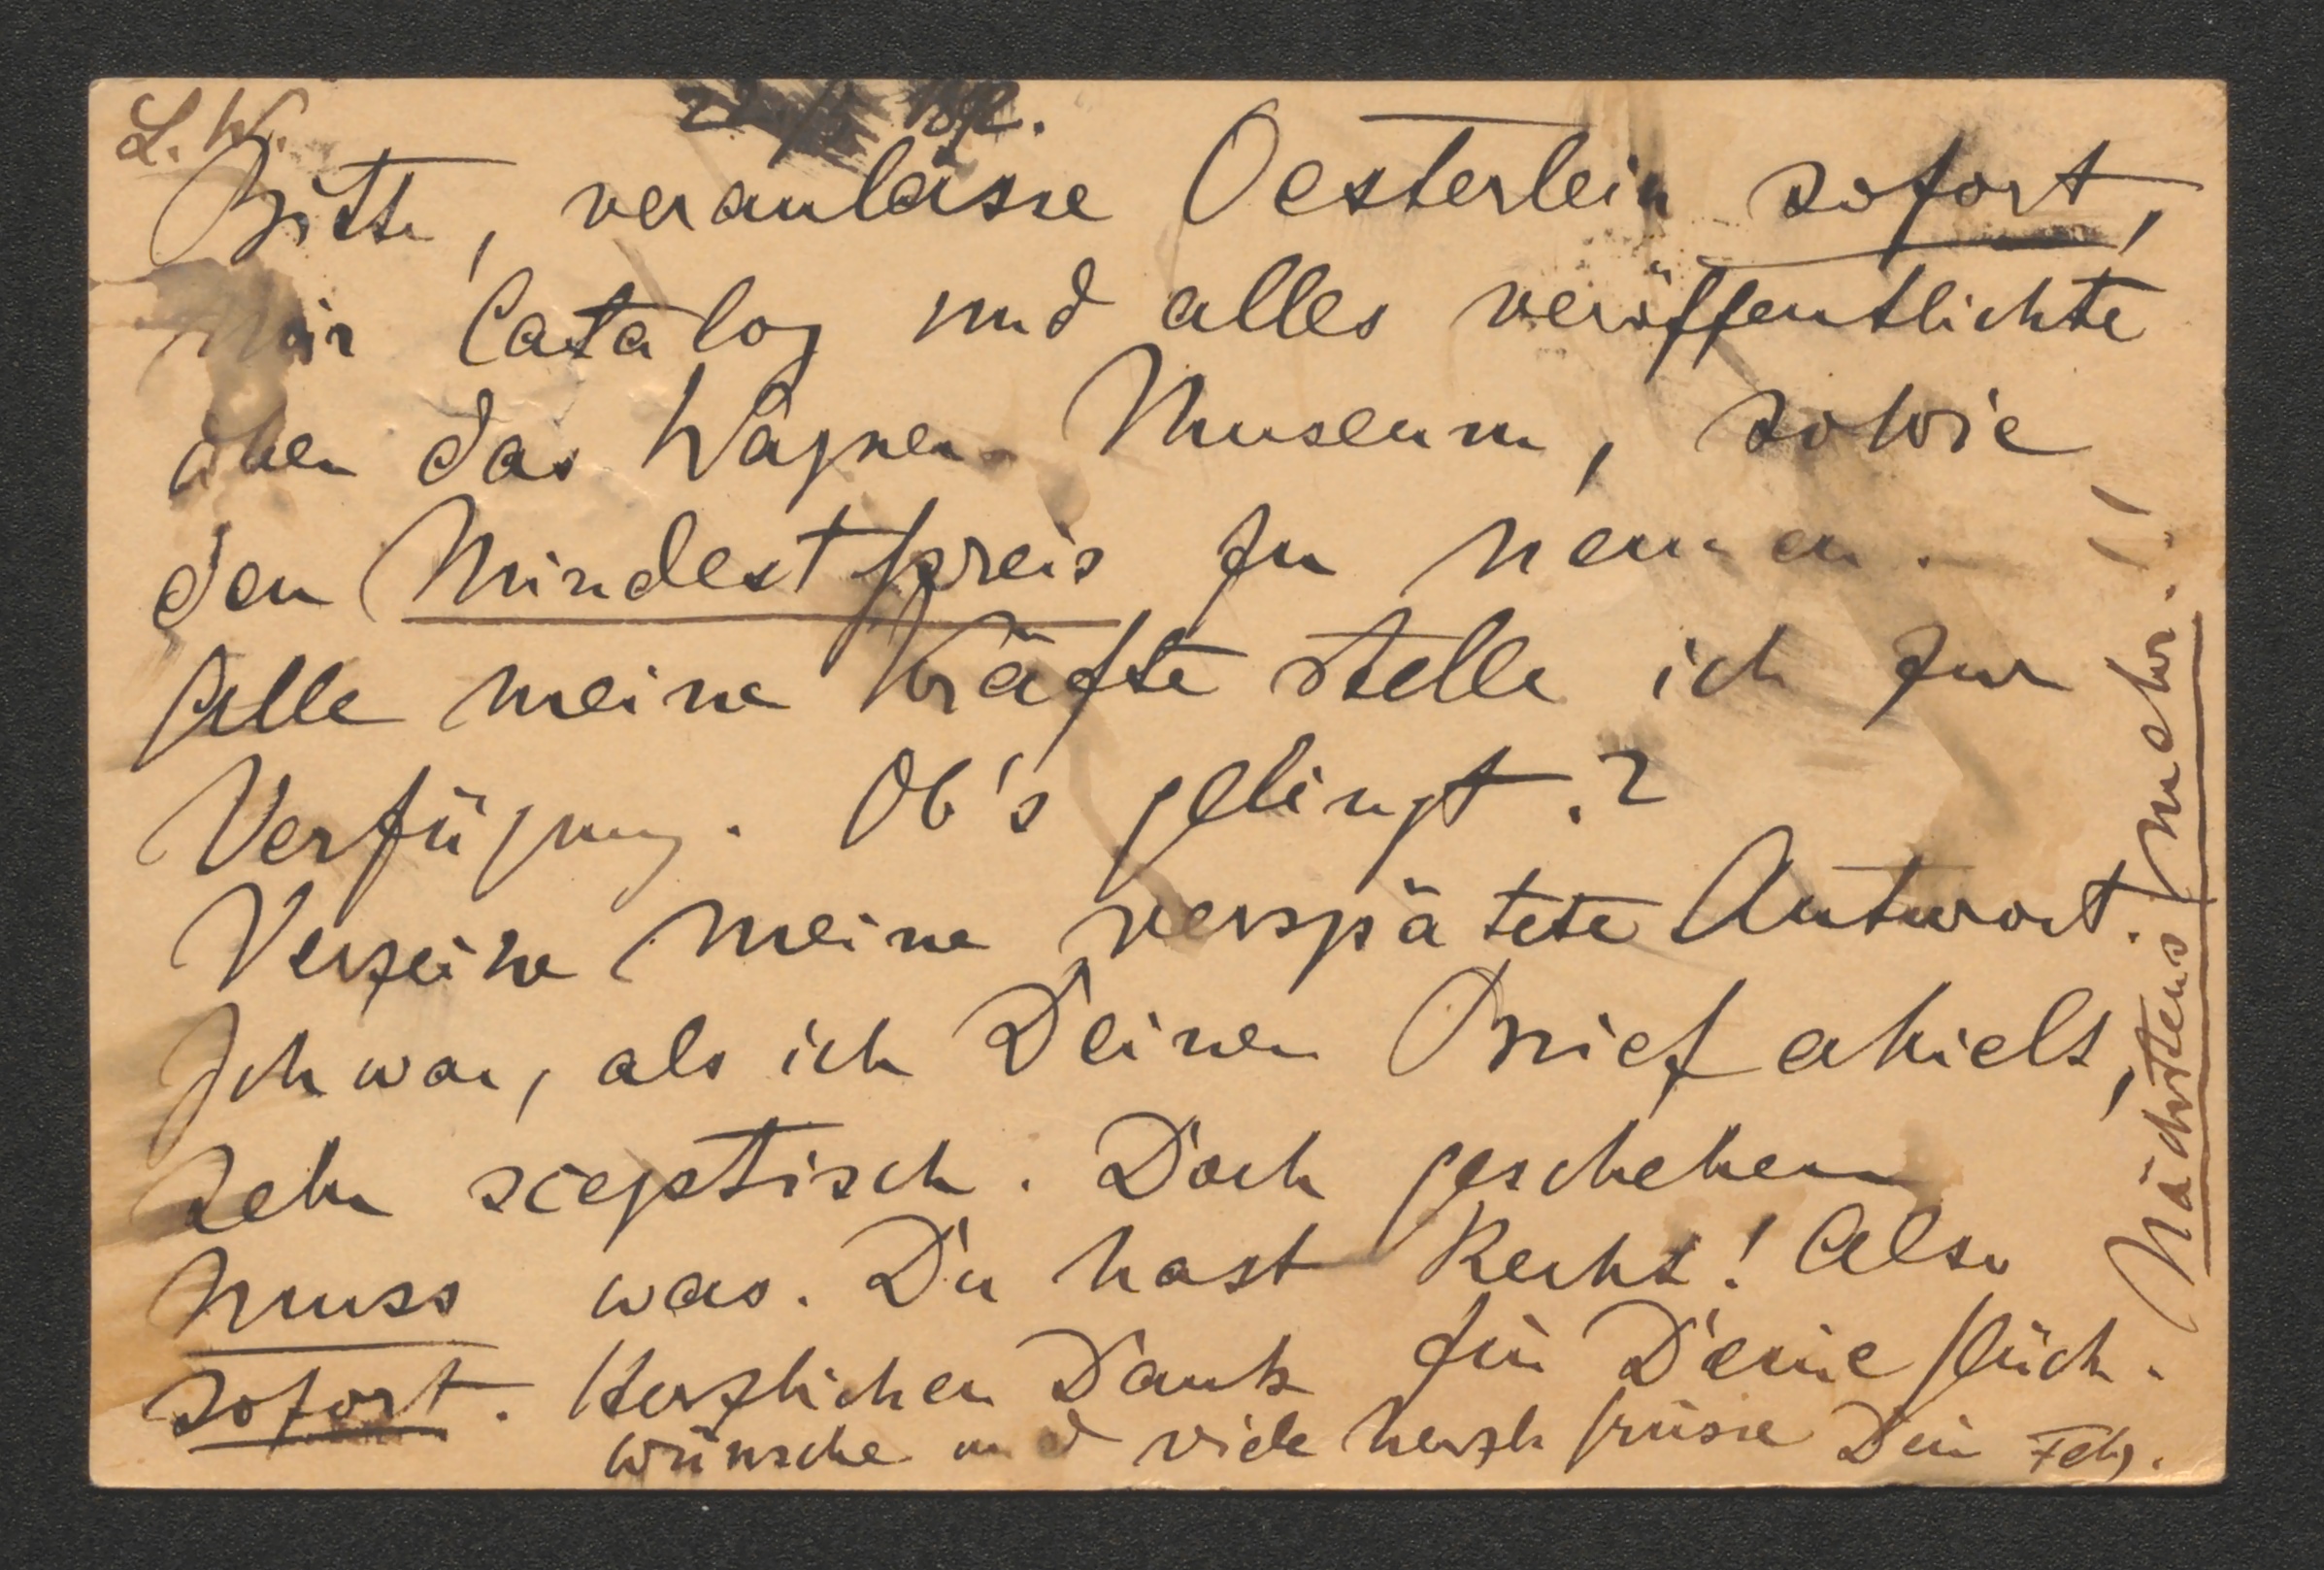 L. W.
Bitte, veranlasse Oesterlein sofort,
mir Catalog und alles veröffentlichte
über das Wagner Museum, sowie
den Mindestpreis zu nennen.
Alle meine Kräfte stelle ich zur
Verfügung. Ob's gelingt.?
Verzeihe meine verspätete Antwort.
Ich war, als ich Deinen Brief erhielt,
sehr sceptisch. Doch geschehen
muss was. Du hast Recht! Also
sofort. Herzlichen Dank für Deine Glück-
wünsche und viele herzl Grüsse Dein
Nächstens mehr.!!